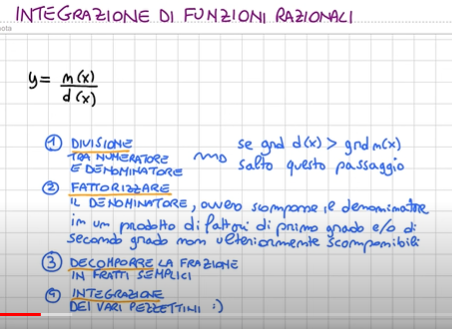 INTEGRAZIONE DI FUNZIONI RAZIONALI
nota
y = n(x)
d(x)
① DIVISIONE
TRA NUMERATORE
E DENOMINATORE
se grd d(x) > grd n(x)
salto questo passaggio
② FATTORIZZARE
IL DENOMINATORE, ovvero scomporre il denominatore
in un prodotto di fattori di primo grado e/o di
secondo grado non ulteriormente scomponibili
③ DECOMPORRE LA FRAZIONE
IN FRATTI SEMPLICI
④ INTEGRAZIONE
DEI VARI PEZZETTINI :)